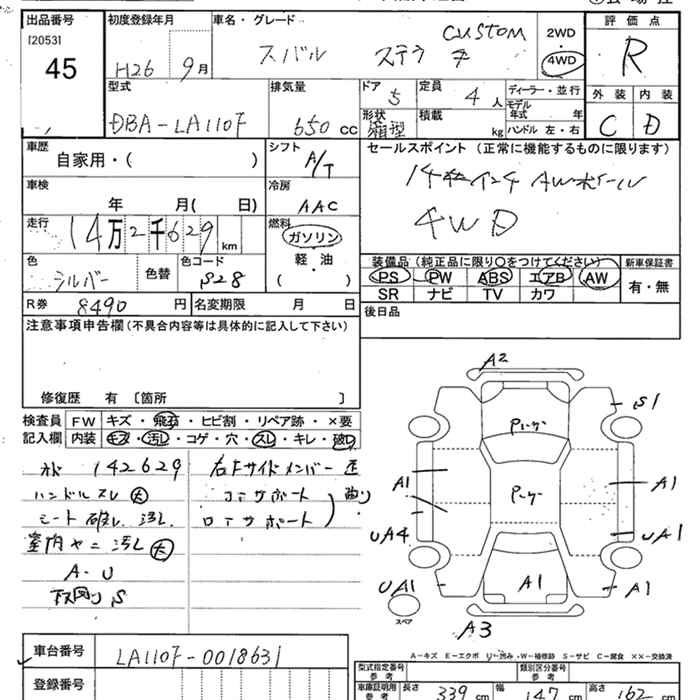 出品番号 初度登録年月 車名・グレード 評価点
[2053] スバル ステラ CUSTOM 2WD・4WD R
45 H26 9月
型式 排気量 ドア 5 定員 4人 ディーラー・並行 外装 内装
DBA-LA110F 650cc 形状 箱型 積載 kg モデル年式 年 C D
ハンドル 左・右
車歴 シフト セールスポイント(正常に機能するものに限ります)
自家用・( ) A/T
車検 年 月( 日) 冷房 AAC 4WD
走行 14万2千629km 燃料 ガソリン
軽・油
( )
色 シルバー 色替 色コード S28
装備品(純正品に限り○をつけてください) 新車保証書
PS PW ABS エアB AW 有・無
SR ナビ TV カワ
R券 8490円 名変期限 月 日 後日品
注意事項申告欄(不具合内容等は具体的に記入して下さい)
修復歴 有 〔箇所 〕
検査員 FW キズ・飛石・ヒビ割・リペア跡・×要
記入欄 内装 キズ・汚し・コゲ・穴・スレ・キレ・破れ
142629 右Fサイドメンバー 歪
ハンドルスレ 大 コアサポート 曲り
シート破レ 汚レ ロアサポート
室内ヤニ汚レ 大
A・U
下廻り S
A2
S1
Pシーサー
A1
Pシーサー
A1
UA4
UA1
UA1
A1
A1
スペア
A3
A-キズ E-エクボ U-凹み W-補修跡 S-サビ C-腐食 ××-交換済
車台番号 LA110F-0018631
登録番号
型式指定番号 参考 類別区分番号 参考
車庫証明用 参考 長さ 339cm 幅 147cm 高さ 162cm